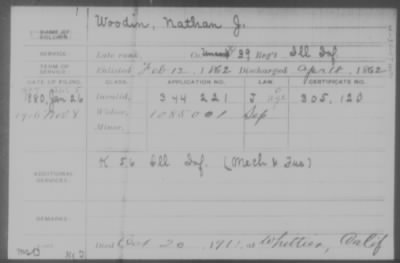 NAME OF SOLDIER:
Woodin, Nathan J.
SERVICE:
Late rank, Co. Unassd 39 Reg't Ill Inf
TERM OF SERVICE:
Enlisted Feb 12, 1862 Discharged Apr 18, 1862
DATE OF FILING. CLASS. APPLICATION NO. LAW. CERTIFICATE NO.
1880, Jan 26 Invalid, 344 221 305,120
Nov 8 Widow, Sep
Minor,
ADDITIONAL SERVICES:
K 56 Ill Inf. (Mech & Fus)
REMARKS:
Died 20, 1911, at Whittier, Calif